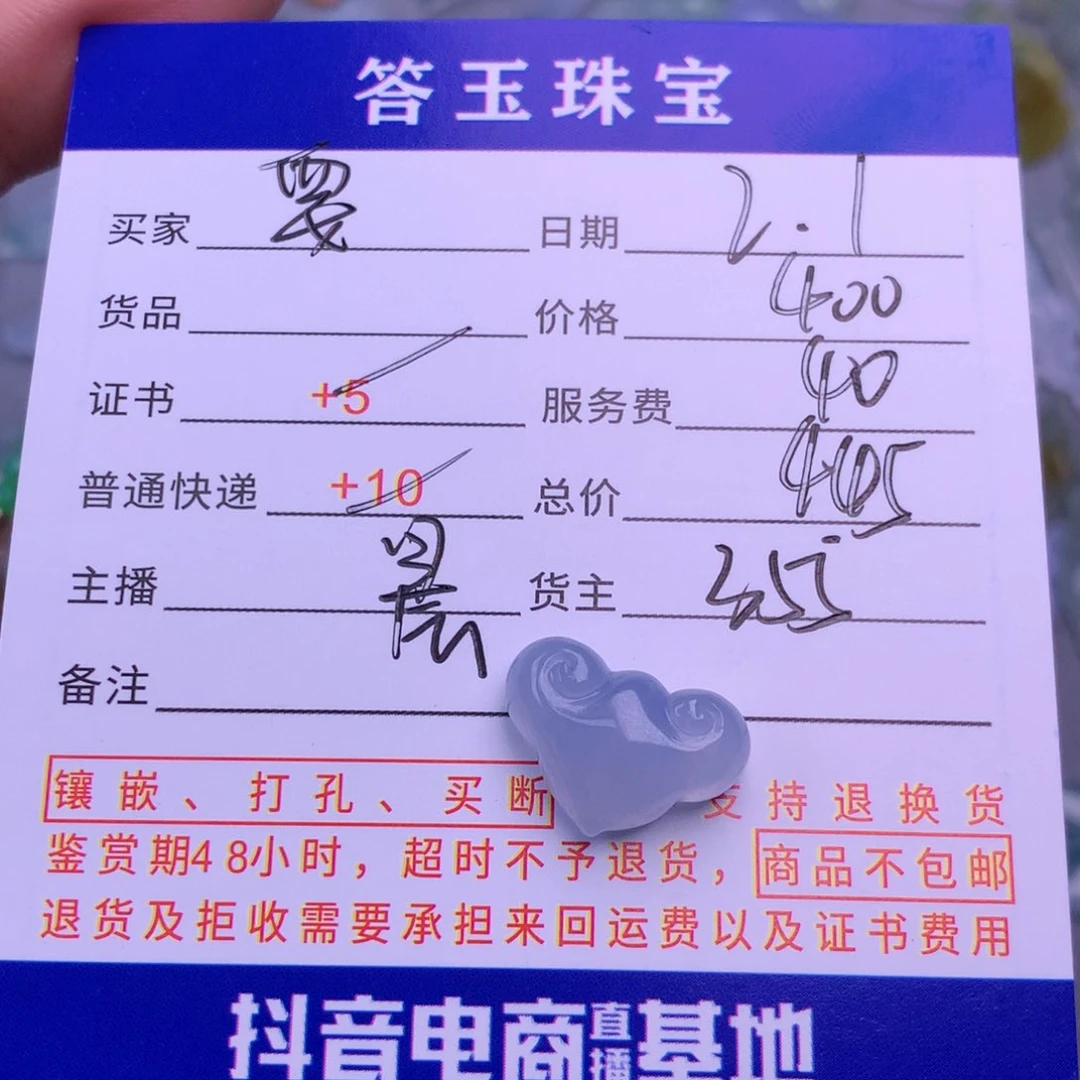 答玉珠宝
买家 日期 2.1
货品 价格 400
证书 +5 服务费 40
普通快递 +10 总价
主播 晨 货主
备注
镶嵌、打孔、买断 支持退换货
鉴赏期48小时，超时不予退货，商品不包邮
退货及拒收需要承担来回运费以及证书费用
抖音电商直播基地